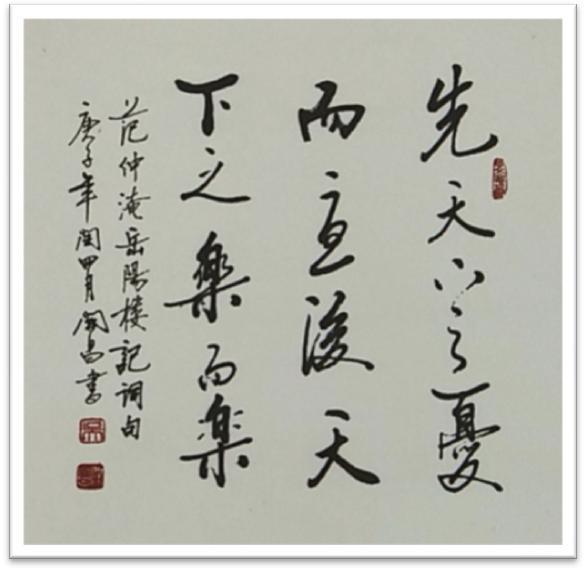 先天下之憂
而憂後天
下之樂而樂
范仲淹岳陽樓記詞句
庚子年閏四月昌書